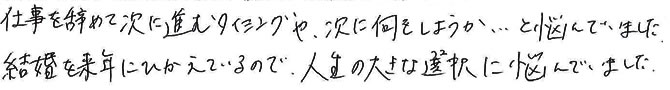 仕事を辞めて次に進むタイミングや、次に何をしようか…と悩んでいました。
結婚を来年にひかえているので、人生の大きな選択に悩んでいました。